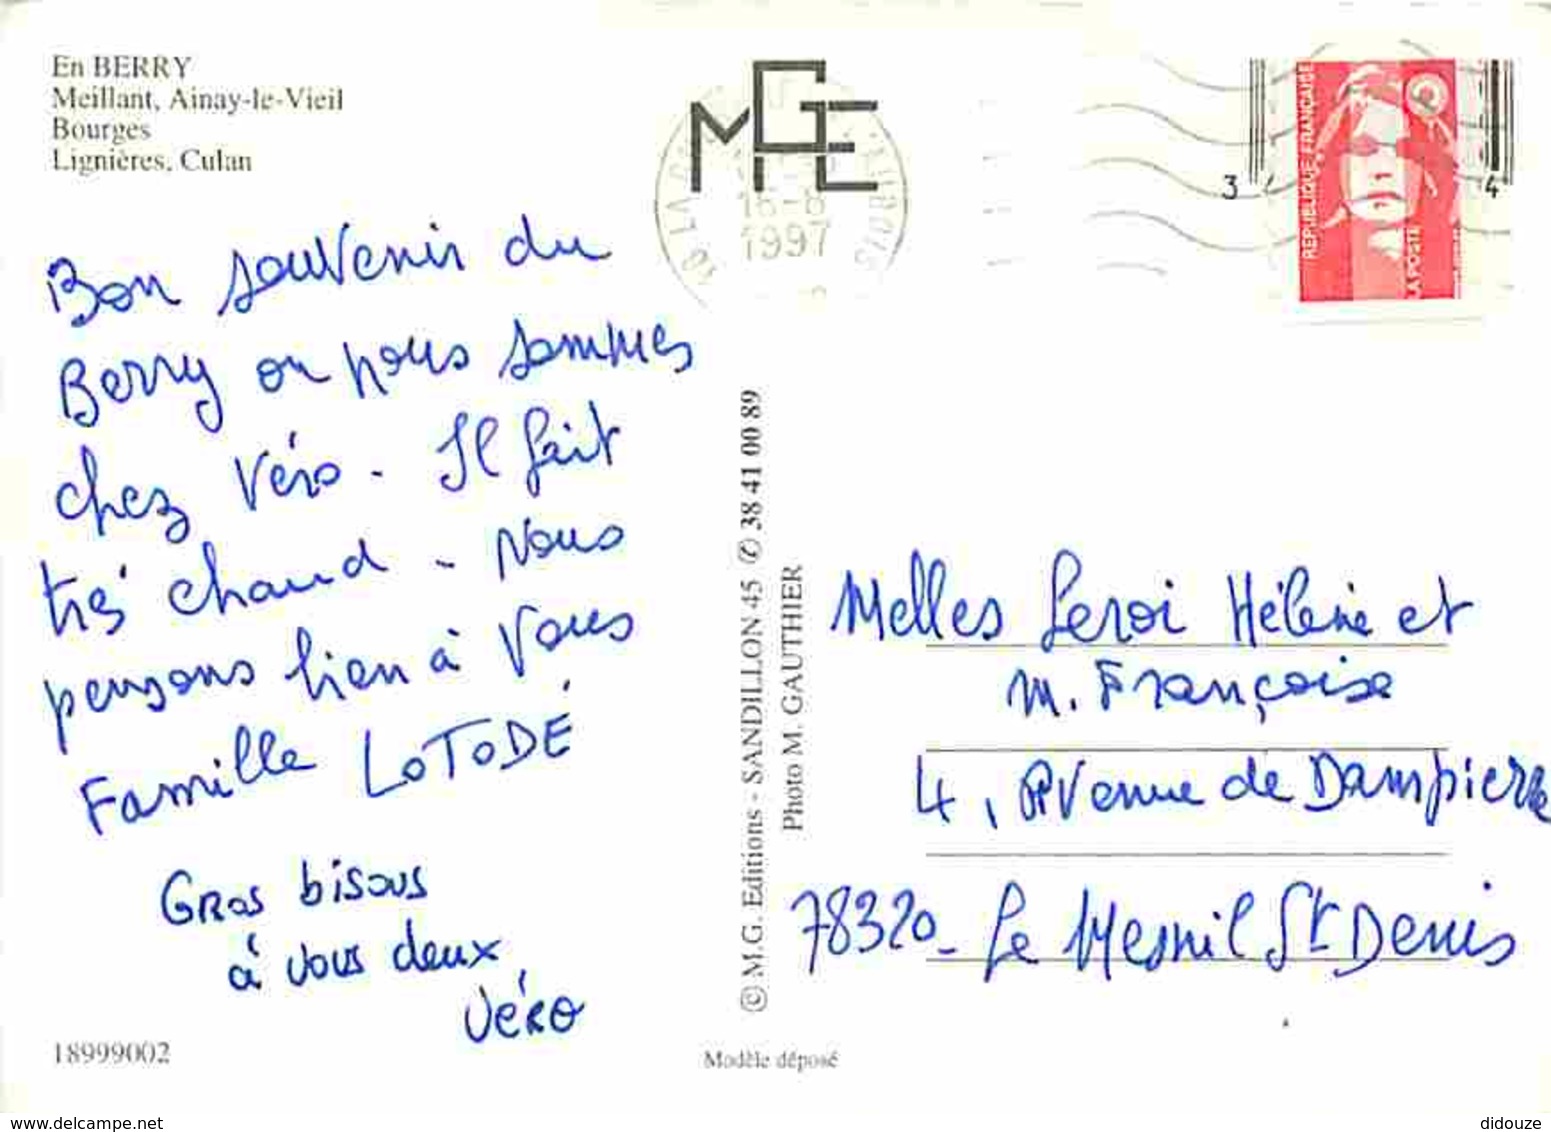 En BERRY
Meillant, Ainay-le-Vieil
Bourges
Lignières, Culan
Bon souvenir du
Berry ou nous sommes
chez Véro - Il fait
très chaud - Nous
pensons bien à Vous
Famille LOTODÉ
Gros bisous
à vous deux
VÉRO
18999002
MGE
18 LA
1997
3
4
REPUBLIQUE FRANÇAISE
LA POSTE
© M.G. Editions - SANDILLON 45 ✆ 38 41 00 89
Photo M. GAUTHIER
Melles Leroi Hélène et
M. Françoise
4, Avenue de Dampierre
78320 - Le Mesnil St Denis
Modèle déposé
www.delcampe.net
didouze